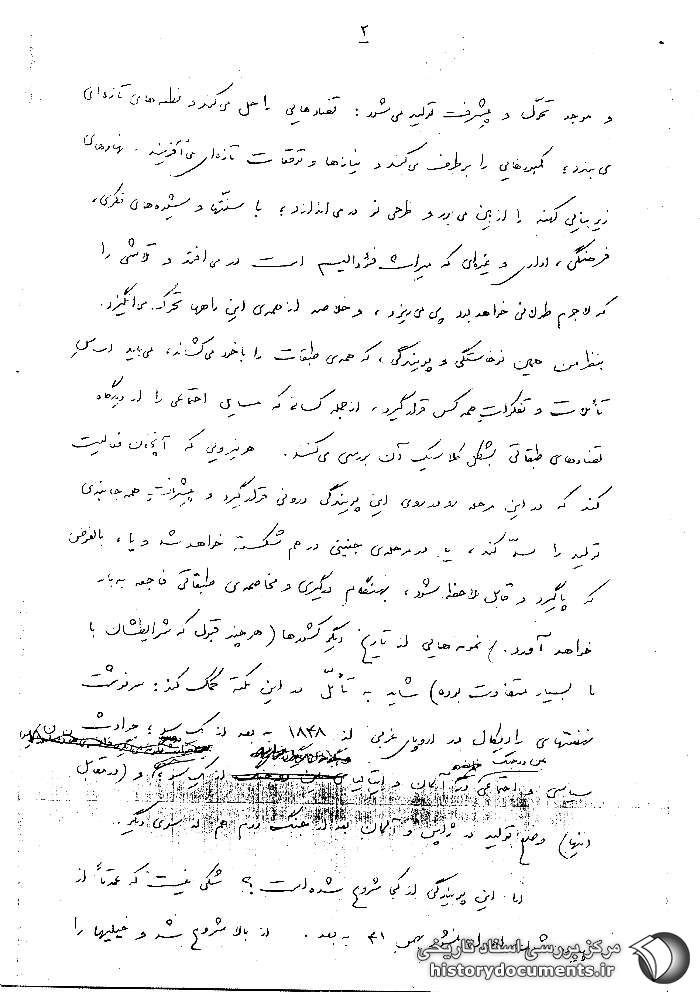 ۲
و موجد تحرّک و پیشرفت تولید می‌شود : تضادهایی را حل می‌کند و نطفه‌های تازه‌ای
می‌بندد ؛ کمبودهایی را برطرف می‌کند و نیازها و توقعات تازه‌ای می‌آفریند . نهادهای
زیربنایی کهنه را از بین می‌برد و طرحی نو در می‌اندازد ؛ با سنتها و شیوه‌های فکری ،
فرهنگی ، اداری و غیره‌ای که میراث فئودالیسم است در می‌افتد و تلاشی را
که لاجرم طولانی خواهد بود پی می‌ریزد ، و خلاصه از همه‌ی این راهها تحرک می‌انگیزد .
بنظر من همین نوخاستگی و پویندگی ، که همه‌ی طبقات را با خود می‌کشاند ، می‌باید اساس
تأملات و تفکرات همه کس قرار گیرد ، از جمله کسانی که مسایل اجتماعی را از دیدگاه
تضادهای طبقاتی بشکل کلاسیک آن بررسی می‌کنند . هر نیرویی که آنچنان فعالیت
کند که در این مرحله رو در روی این پویندگی درونی قرار گیرد و پیشرفت همه جانبه‌ی
تولید را سدّ کند ، یا در مرحله‌ی جنینی در هم شکسته خواهد شد و یا ، بالفرض
که پا گیرد و قابل ملاحظه شود ، بهنگام درگیری و مخاصمه‌ی طبقاتی فاجعه به بار
خواهد آورد . نمونه‌هایی از تاریخ دیگر کشورها ( هر چند قبول که شرایطشان با
ما بسیار متفاوت بوده ) شاید به تأمّل در این نکته کمک کند : سرنوشت
نهضتهای رادیکال در اروپای غربی از ۱۸۴۸ به بعد از یک سو ؛ حوادث
سیاسی و اجتماعی آلمان و ایتالیا از یک سو و ( در مقابل
اینها ) وضع تولید در ژاپن و آلمان بعد از جنگ دوم هم از سوی دیگر .
اما این پویندگی از کجا شروع شده است ؟ شکی نیست که عمدتاً از
۴۱ به بعد . از بالا شروع شد و خیلیها را
مرکز بررسی اسناد تاریخی
historydocuments.ir